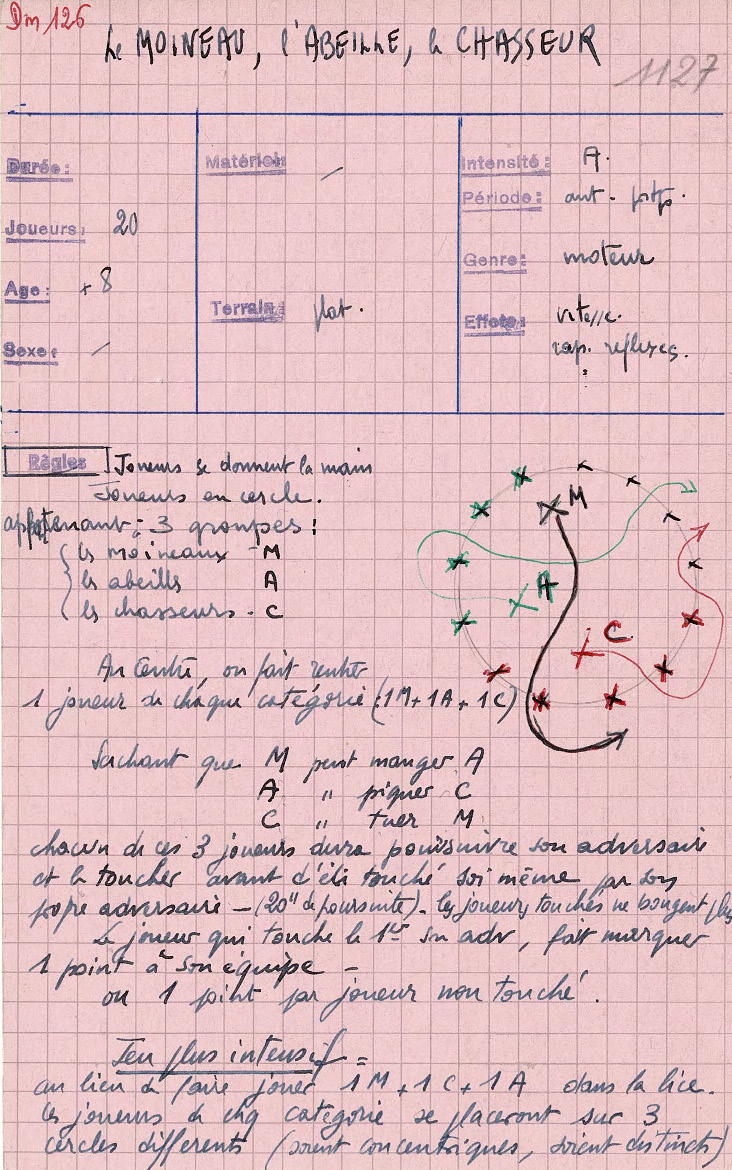 Dm 126
Le MOINEAU, l'ABEILLE, le CHASSEUR
1127
Durée:
Matériel: /
Intensité: A.
Période: ant.
Joueurs: 20
Genre: moteur
Age: + 8
Terrain: plat.
Effets: vitesse.
rap. réflexes.
Sexe: /
Règles Joueurs se donnent la main
Joueurs en cercle.
appartenant à 3 groupes:
les moineaux - M
les abeilles A
les chasseurs - C
M
A
C
Au Centre, on fait rentrer
1 joueur de chaque catégorie (1M+1A+1C)
Sachant que M peut manger A
A " piquer C
C " tuer M
chacun de ces 3 joueurs devra poursuivre son adversaire
et le toucher avant d'être touché soi même par son
propre adversaire - (20" de poursuite) - les joueurs touchés ne bougent plus
Le joueur qui touche le 1er son adv, fait marquer
1 point à son équipe -
ou 1 point par joueur non touché.
Jeu plus intensif =
au lieu de faire jouer 1M + 1C + 1A dans la lice.
les joueurs de chq catégorie se placeront sur 3
cercles differents (soient concentriques, soient distincts)